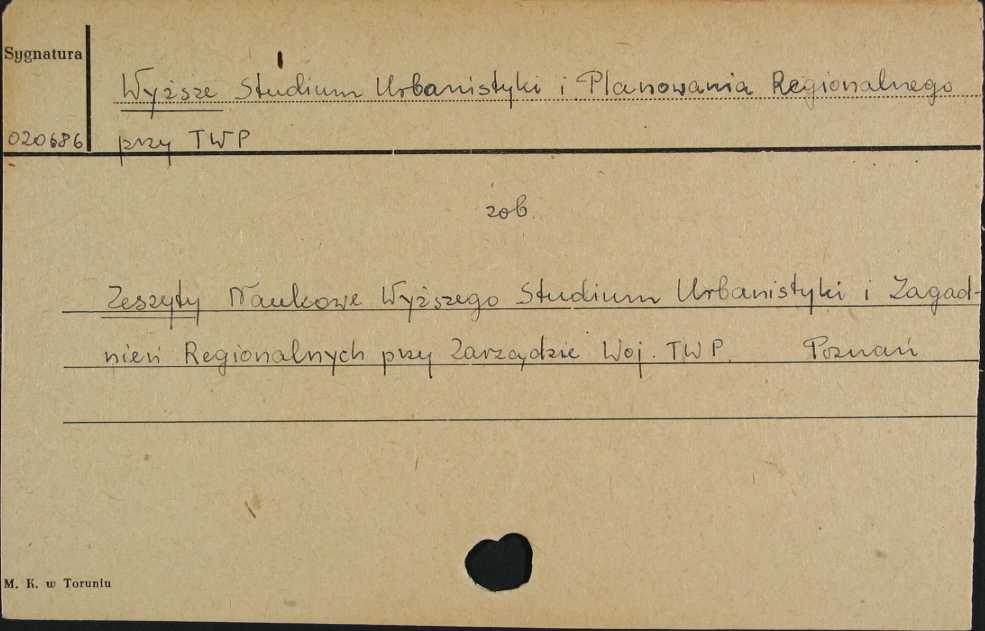 Sygnatura
Wyższe Studium Urbanistyki i Planowania Regionalnego
020686 przy TWP
zob.
Zeszyty Naukowe Wyższego Studium Urbanistyki i Zagad-
nień Regionalnych przy Zarządzie Woj. TWP. Poznań
M. K. w Toruniu